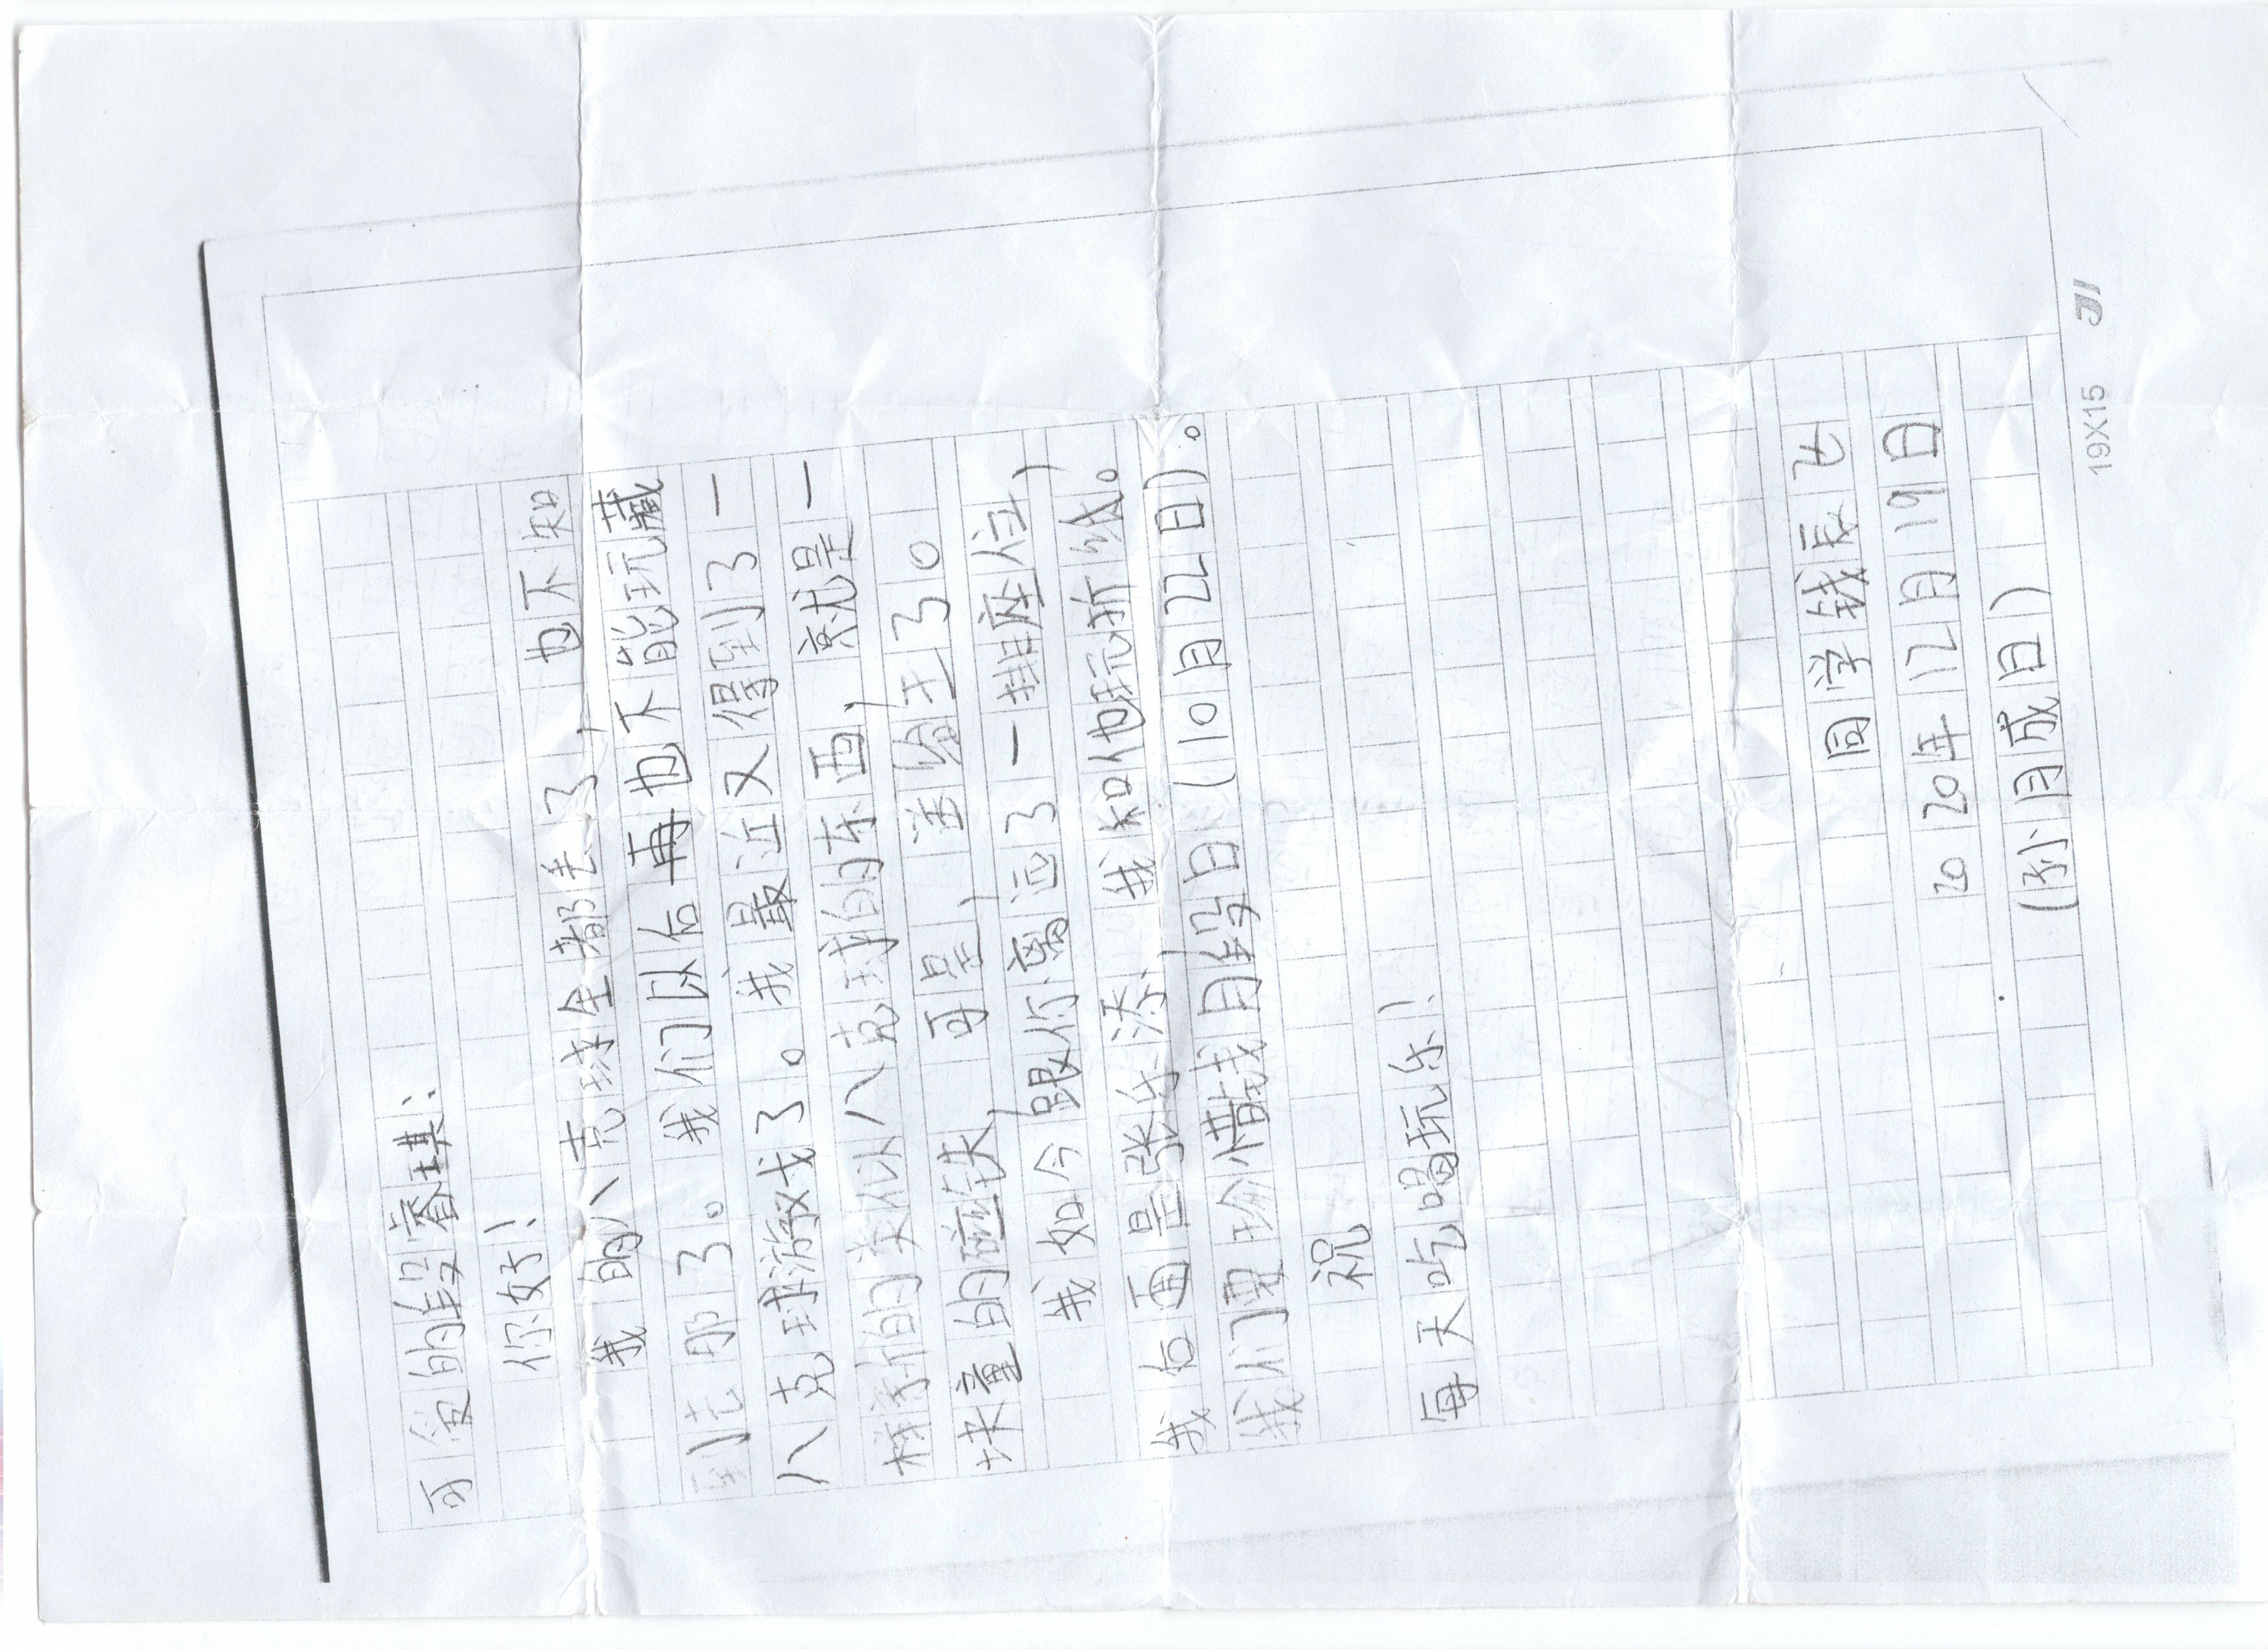 可爱的段睿琪：
你好！
我的八克球全都丢了，也不知
到芒那了。我们以后再也不能玩藏
八克球游戏了。我最近又得到了一
样新的类似八克球的东西，就是一
块重的磁铁，可是，送给王了。
我如今跟你离远了一排座位，
我右面是张乐添，我和他玩折纸。
我们要珍惜我用假日（10月22日）。
祝
每天吃喝玩乐！
同学钱辰
2020年12月19日
（孙月成日）
19X15